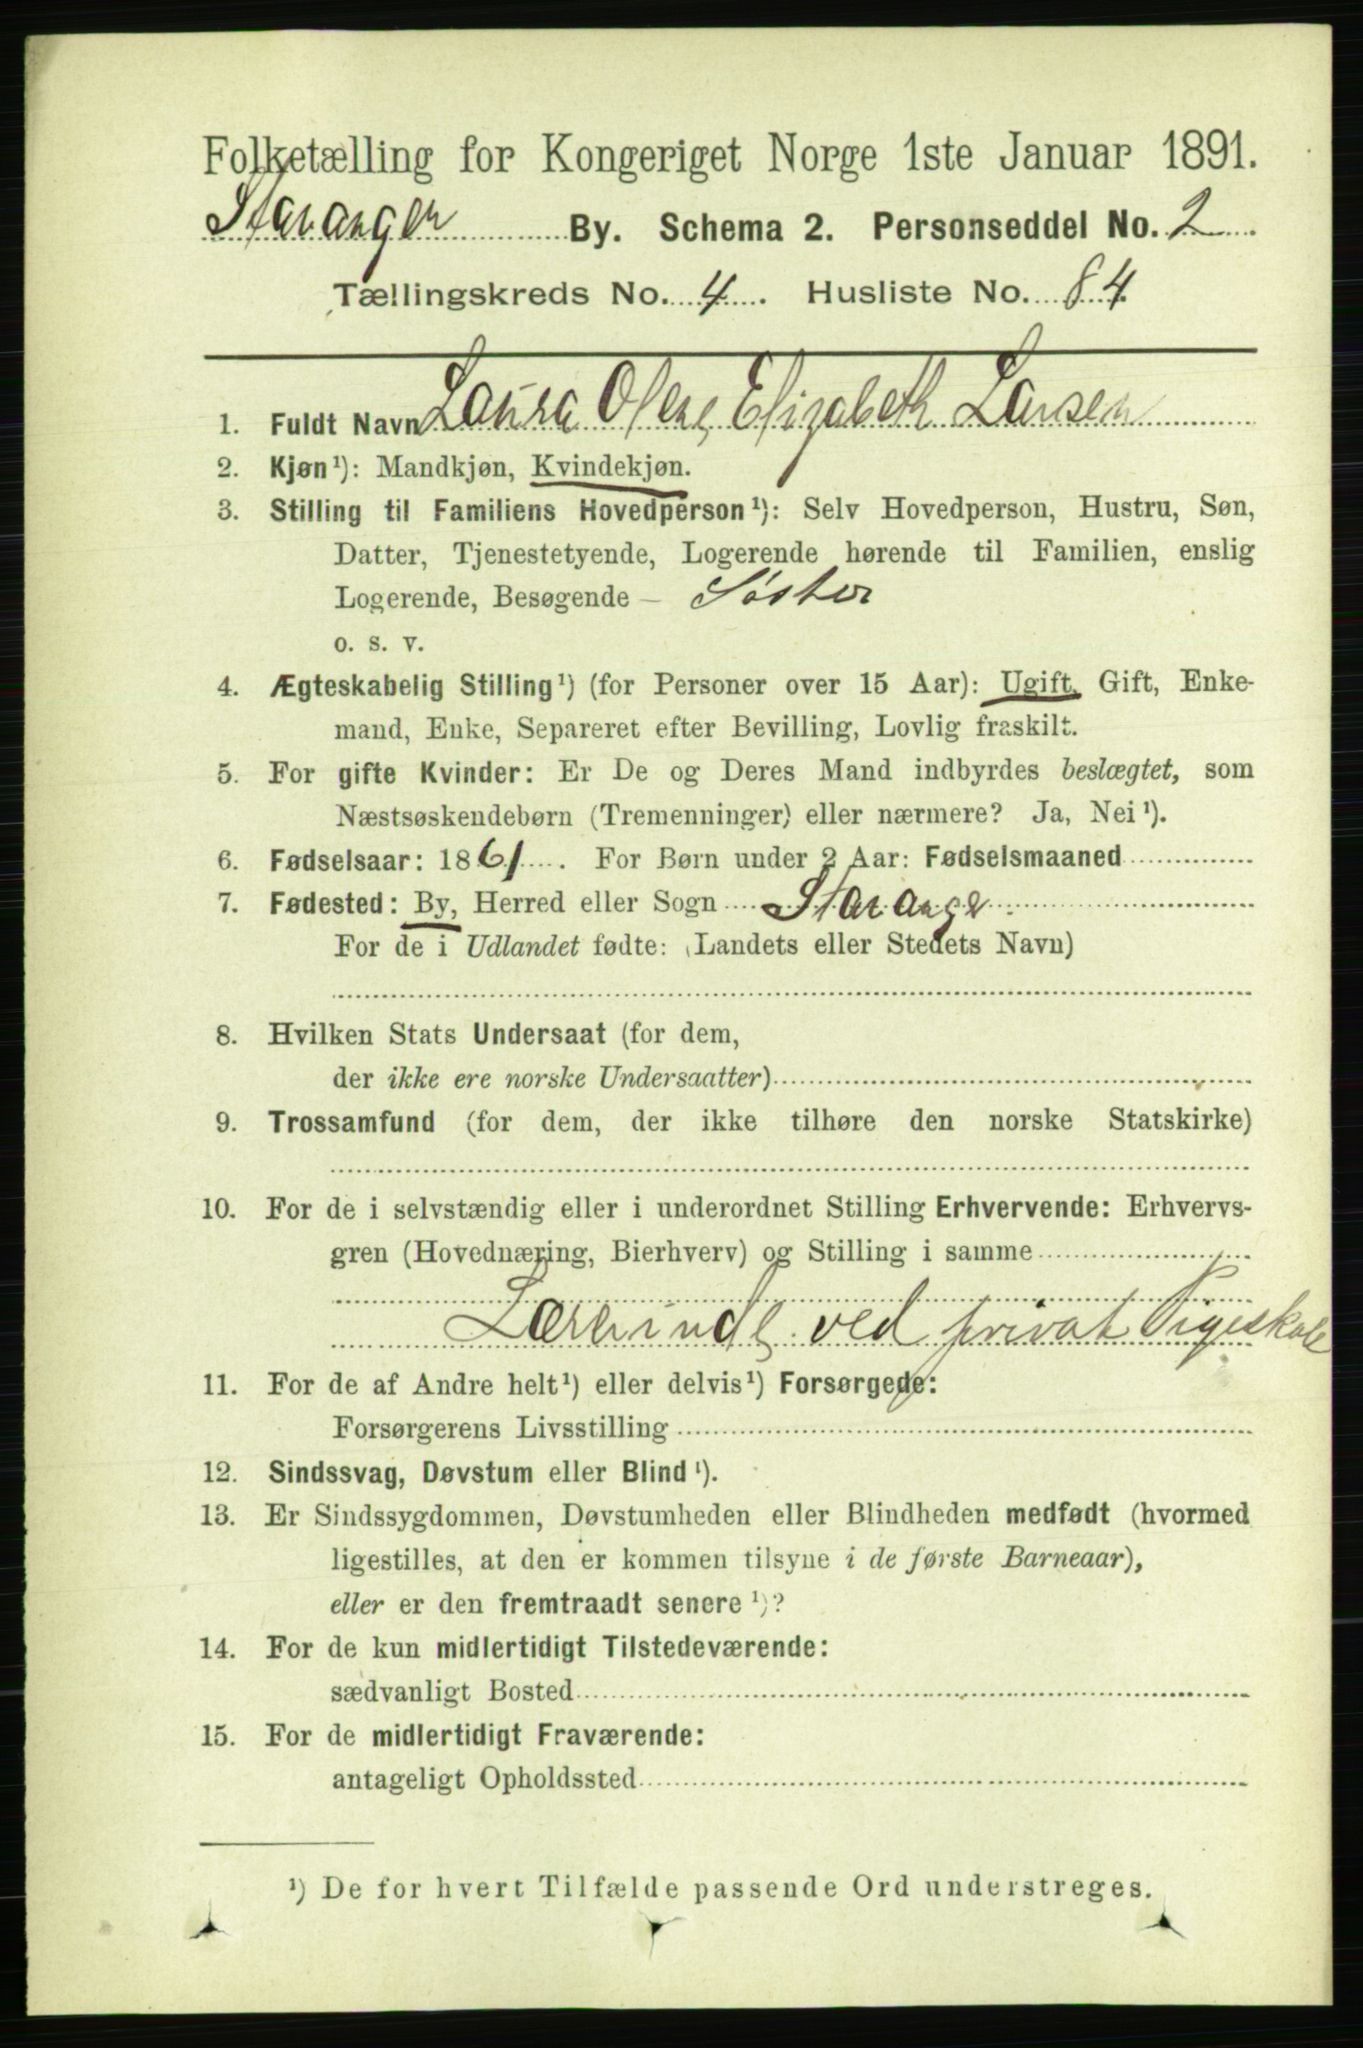 Folketælling for Kongeriget Norge 1ste Januar 1891.
Stavanger By. Schema 2. Personseddel No. 2
Tællingskreds No. 4. Husliste No. 84
1. Fuldt Navn Laura Olene Elizabeth Larsen
2. Kjøn¹): Mandkjøn, Kvindekjøn.
3. Stilling til Familiens Hovedperson¹): Selv Hovedperson, Hustru, Søn,
Datter, Tjenestetyende, Logerende hørende til Familien, enslig
Logerende, Besøgende – Søster
o. s. v.
4. Ægteskabelig Stilling¹) (for Personer over 15 Aar): Ugift, Gift, Enke-
mand, Enke, Separeret efter Bevilling, Lovlig fraskilt.
5. For gifte Kvinder: Er De og Deres Mand indbyrdes beslægtet, som
Næstsøskendebørn (Tremenninger) eller nærmere? Ja, Nei¹).
6. Fødselsaar: 1861. For Børn under 2 Aar: Fødselsmaaned
7. Fødested: By, Herred eller Sogn Stavange
For de i Udlandet fødte: (Landets eller Stedets Navn)
8. Hvilken Stats Undersaat (for dem,
der ikke ere norske Undersaatter)
9. Trossamfund (for dem, der ikke tilhøre den norske Statskirke)
10. For de i selvstændig eller i underordnet Stilling Erhvervende: Erhvervs-
gren (Hovednæring, Bierhverv) og Stilling i samme
Lærerinde ved privat Pigeskole
11. For de af Andre helt¹) eller delvis¹) Forsørgede:
Forsørgerens Livsstilling
12. Sindssvag, Døvstum eller Blind¹).
13. Er Sindssygdommen, Døvstumheden eller Blindheden medfødt (hvormed
ligestilles, at den er kommen tilsyne i de første Barneaar),
eller er den fremtraadt senere¹)?
14. For de kun midlertidigt Tilstedeværende:
sædvanligt Bosted
15. For de midlertidigt Fraværende:
antageligt Opholdssted
¹) De for hvert Tilfælde passende Ord understreges.